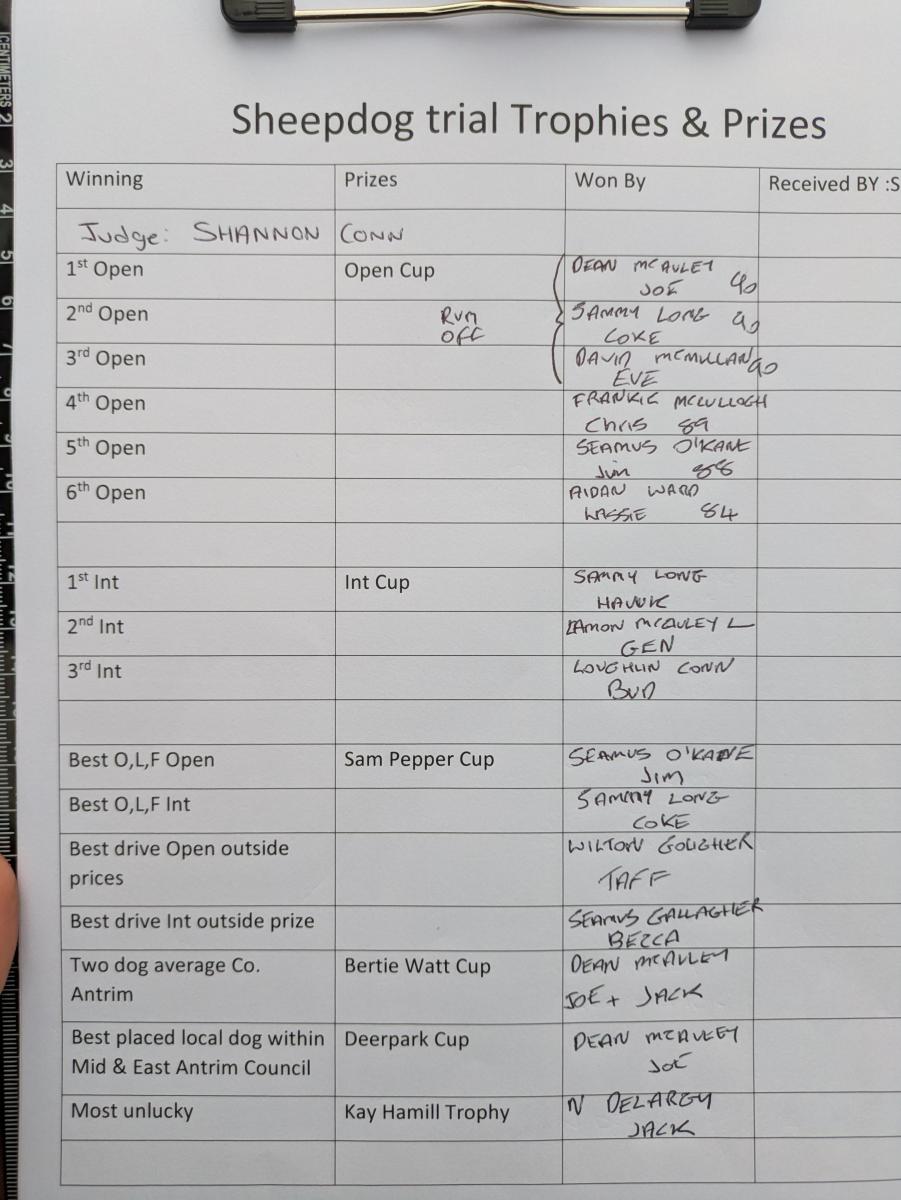 CENTIMETERS 2
3
4
5
6
Sheepdog trial Trophies & Prizes
Winning Prizes Won By Received BY :S
Judge: SHANNON CONN
1st Open Open Cup DEAN MCAULEY
JOE 90
2nd Open RUN SAMMY LONG 90
OFF COKE
3rd Open DAVID MCMULLAN 90
EVE
4th Open FRANKIE MCCULLOGH
Chris 89
5th Open SEAMUS O'KANE
Jim 88
6th Open AIDAN WARD
LASSIE 84
1st Int Int Cup SAMMY LONG
HAWK
2nd Int EAMON MCAULEY L
GEN
3rd Int LOUGHLIN CONN
BUD
Best O,L,F Open Sam Pepper Cup SEAMUS O'KANE
JIM
Best O,L,F Int SAMMY LONG
COKE
Best drive Open outside WILTON GOUGHER
prices TAFF
Best drive Int outside prize SEAMUS GALLAGHER
BEZCA
Two dog average Co. Bertie Watt Cup DEAN MCAULEY
Antrim JOE + JACK
Best placed local dog within Deerpark Cup DEAN MCAULEY
Mid & East Antrim Council JOE
Most unlucky Kay Hamill Trophy N DELARGY
JACK